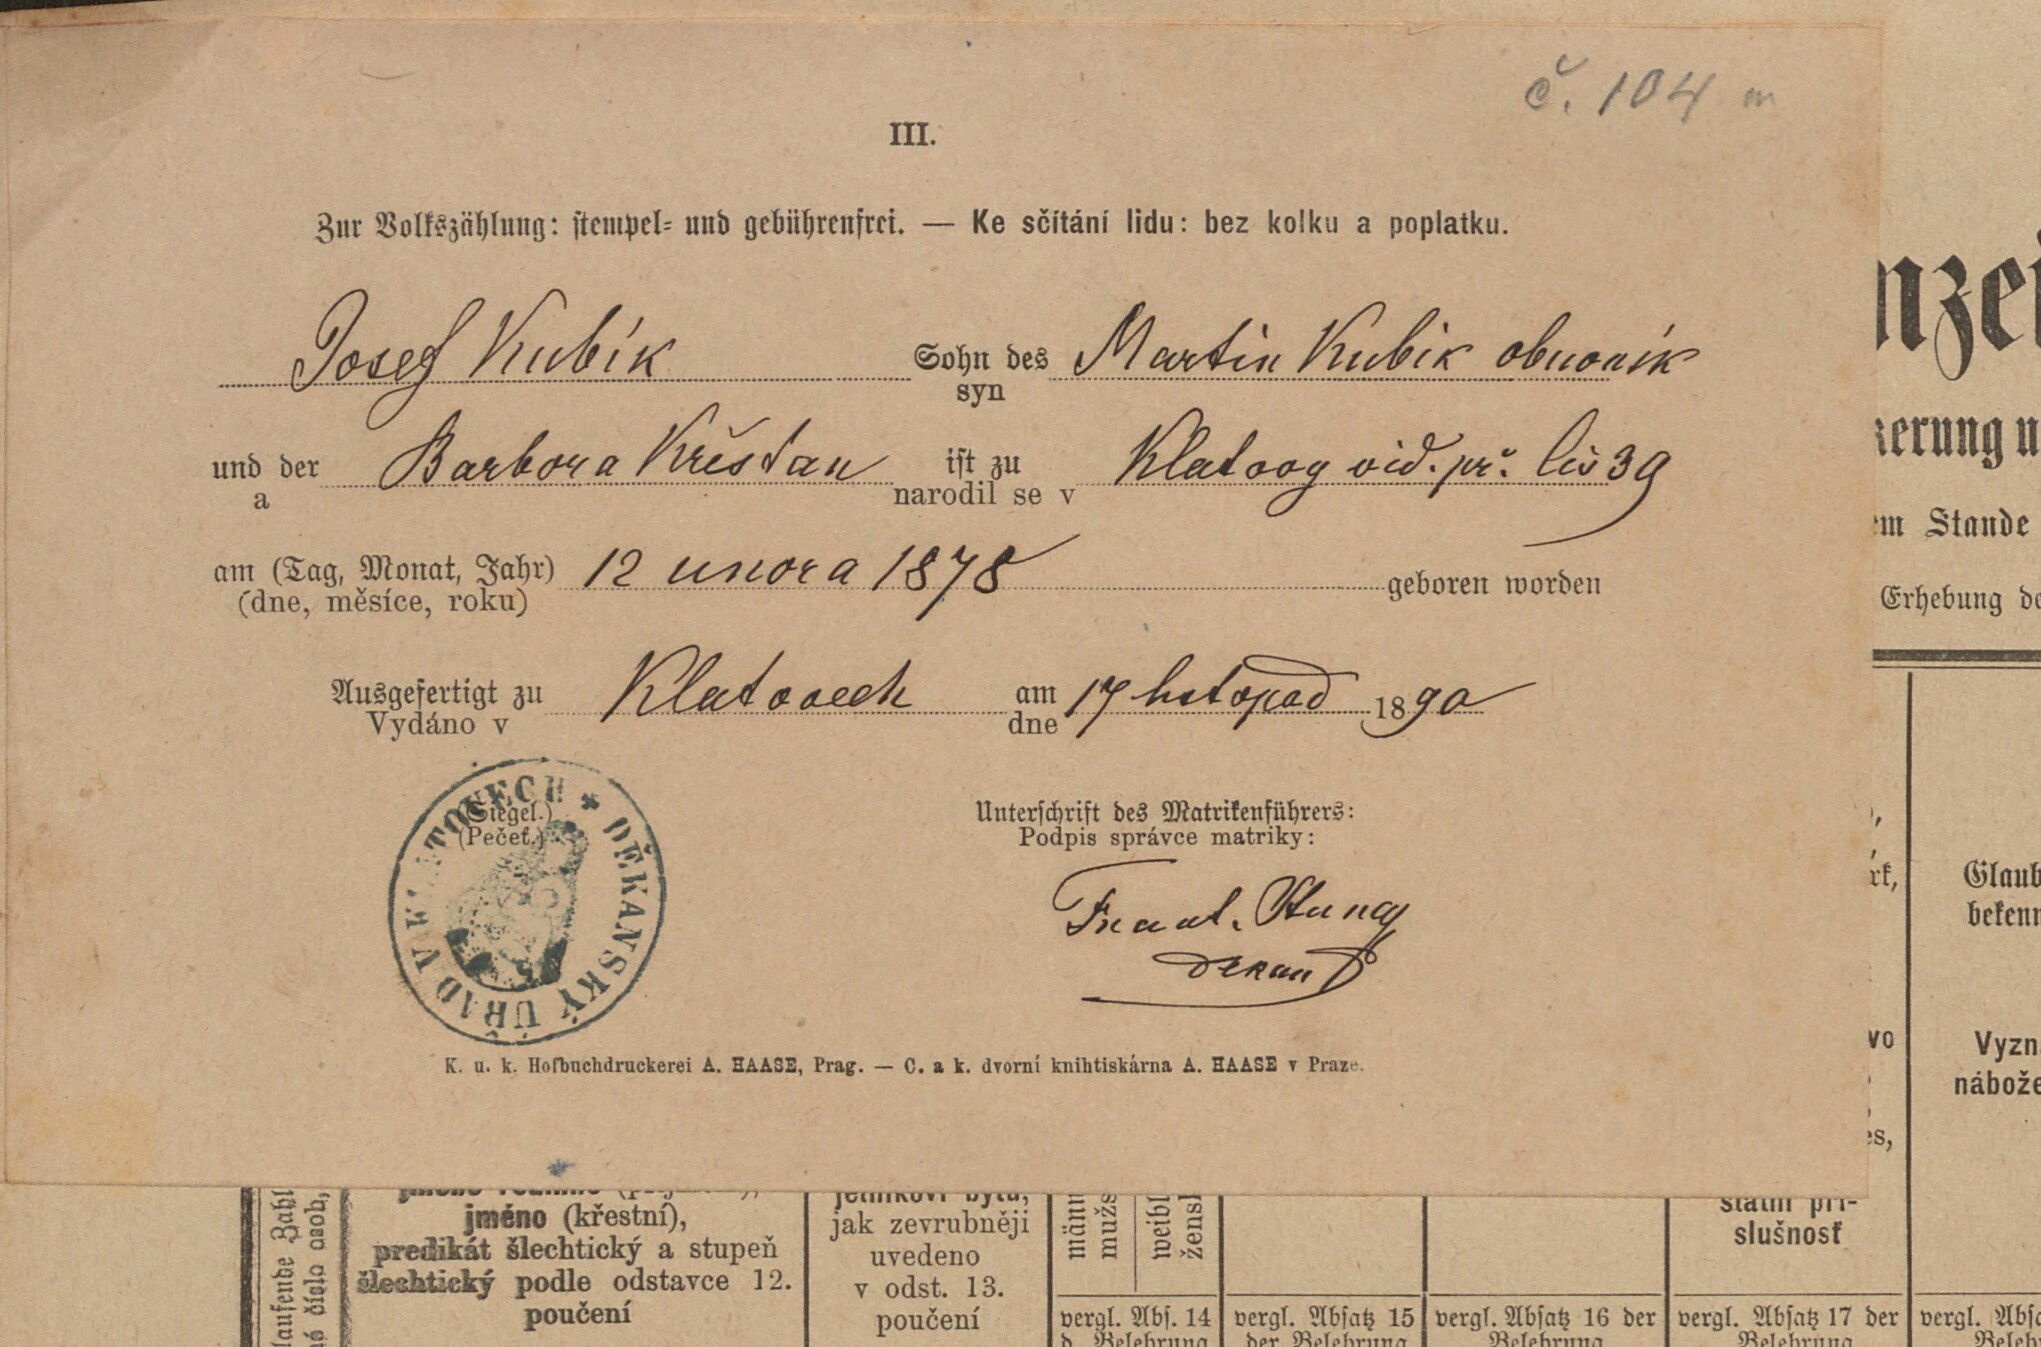 č. 104
III.
Zur Volkszählung: stempel- und gebührenfrei. — Ke sčítání lidu: bez kolku a poplatku.
Josef Kubík Sohn des Martin Kubik obuvník
syn
und der Barbora Křesťan ist zu Klatovy víd. př. čís 39
a narodil se v
am (Tag, Monat, Jahr) 12 unora 1878 geboren worden
(dne, měsíce, roku)
Ausgefertigt zu Klatovech am 17 listopad 1890
Vydáno v dne
(Siegel.)
(Pečeť.)
DĚKANSKÝ ÚŘAD V KLATOVECH *
Unterschrift des Matrikenführers:
Podpis správce matriky:
děkan
K. u. k. Hofbuchdruckerei A. HAASE, Prag. — C. a k. dvorní knihtiskárna A. HAASE v Praze.
nzei
kerung u
em Stande
Erhebung de
rk,
Glaub
bekenn
vo
Vyzn
nábože
es,
laufende Zahl
číslo osob,
jméno (křestní),
predikát šlechtický a stupeň
šlechtický podle odstavce 12.
poučení
jetníkovi bytu,
jak zevrubněji
uvedeno
v odst. 13.
poučení
männ
mužs
weibl
žensk
státní pří-
slušnosť
vergl. Abs. 14
d. Belehrung
vergl. Absatz 15
der Belehrung
vergl. Absatz 16 der
Belehrung
vergl. Absatz 17 der
Belehrung
vergl. Absa
Beleh